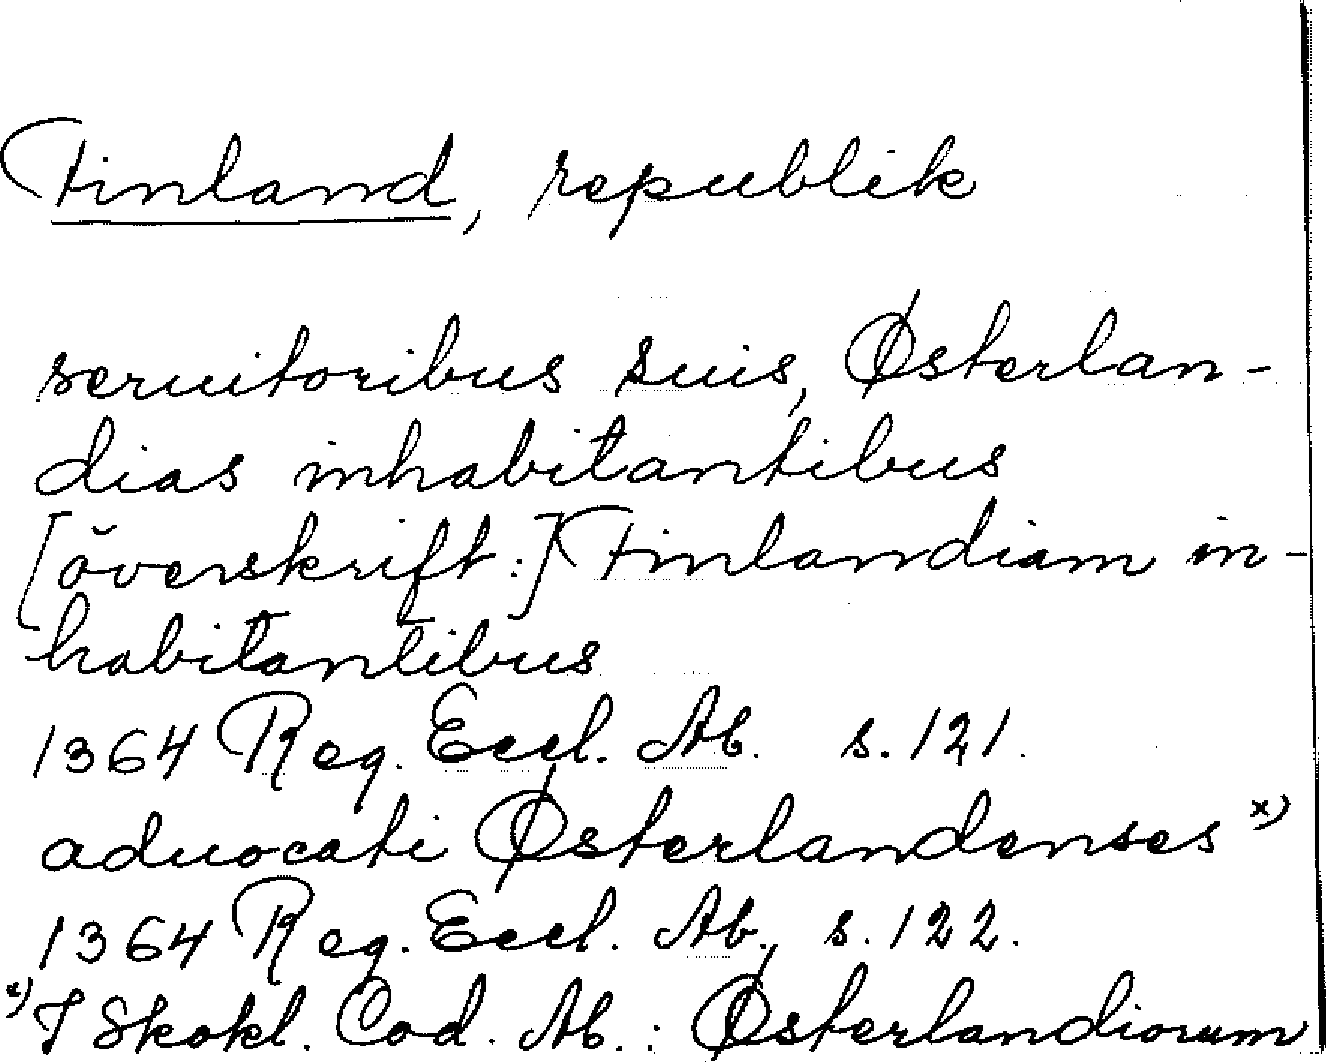 Finland, republik
seruitoribus suis, Østerlan-
dias inhabitantibus
[överskrift:] Finlandiam in-
habitantibus
1364 Reg. Eccl. Ab. s. 121.
aduocati Østerlandenses x)
1364 Reg. Eccl. Ab., s. 122.
x) I Skokl. Cod. Ab.: Østerlandiorum